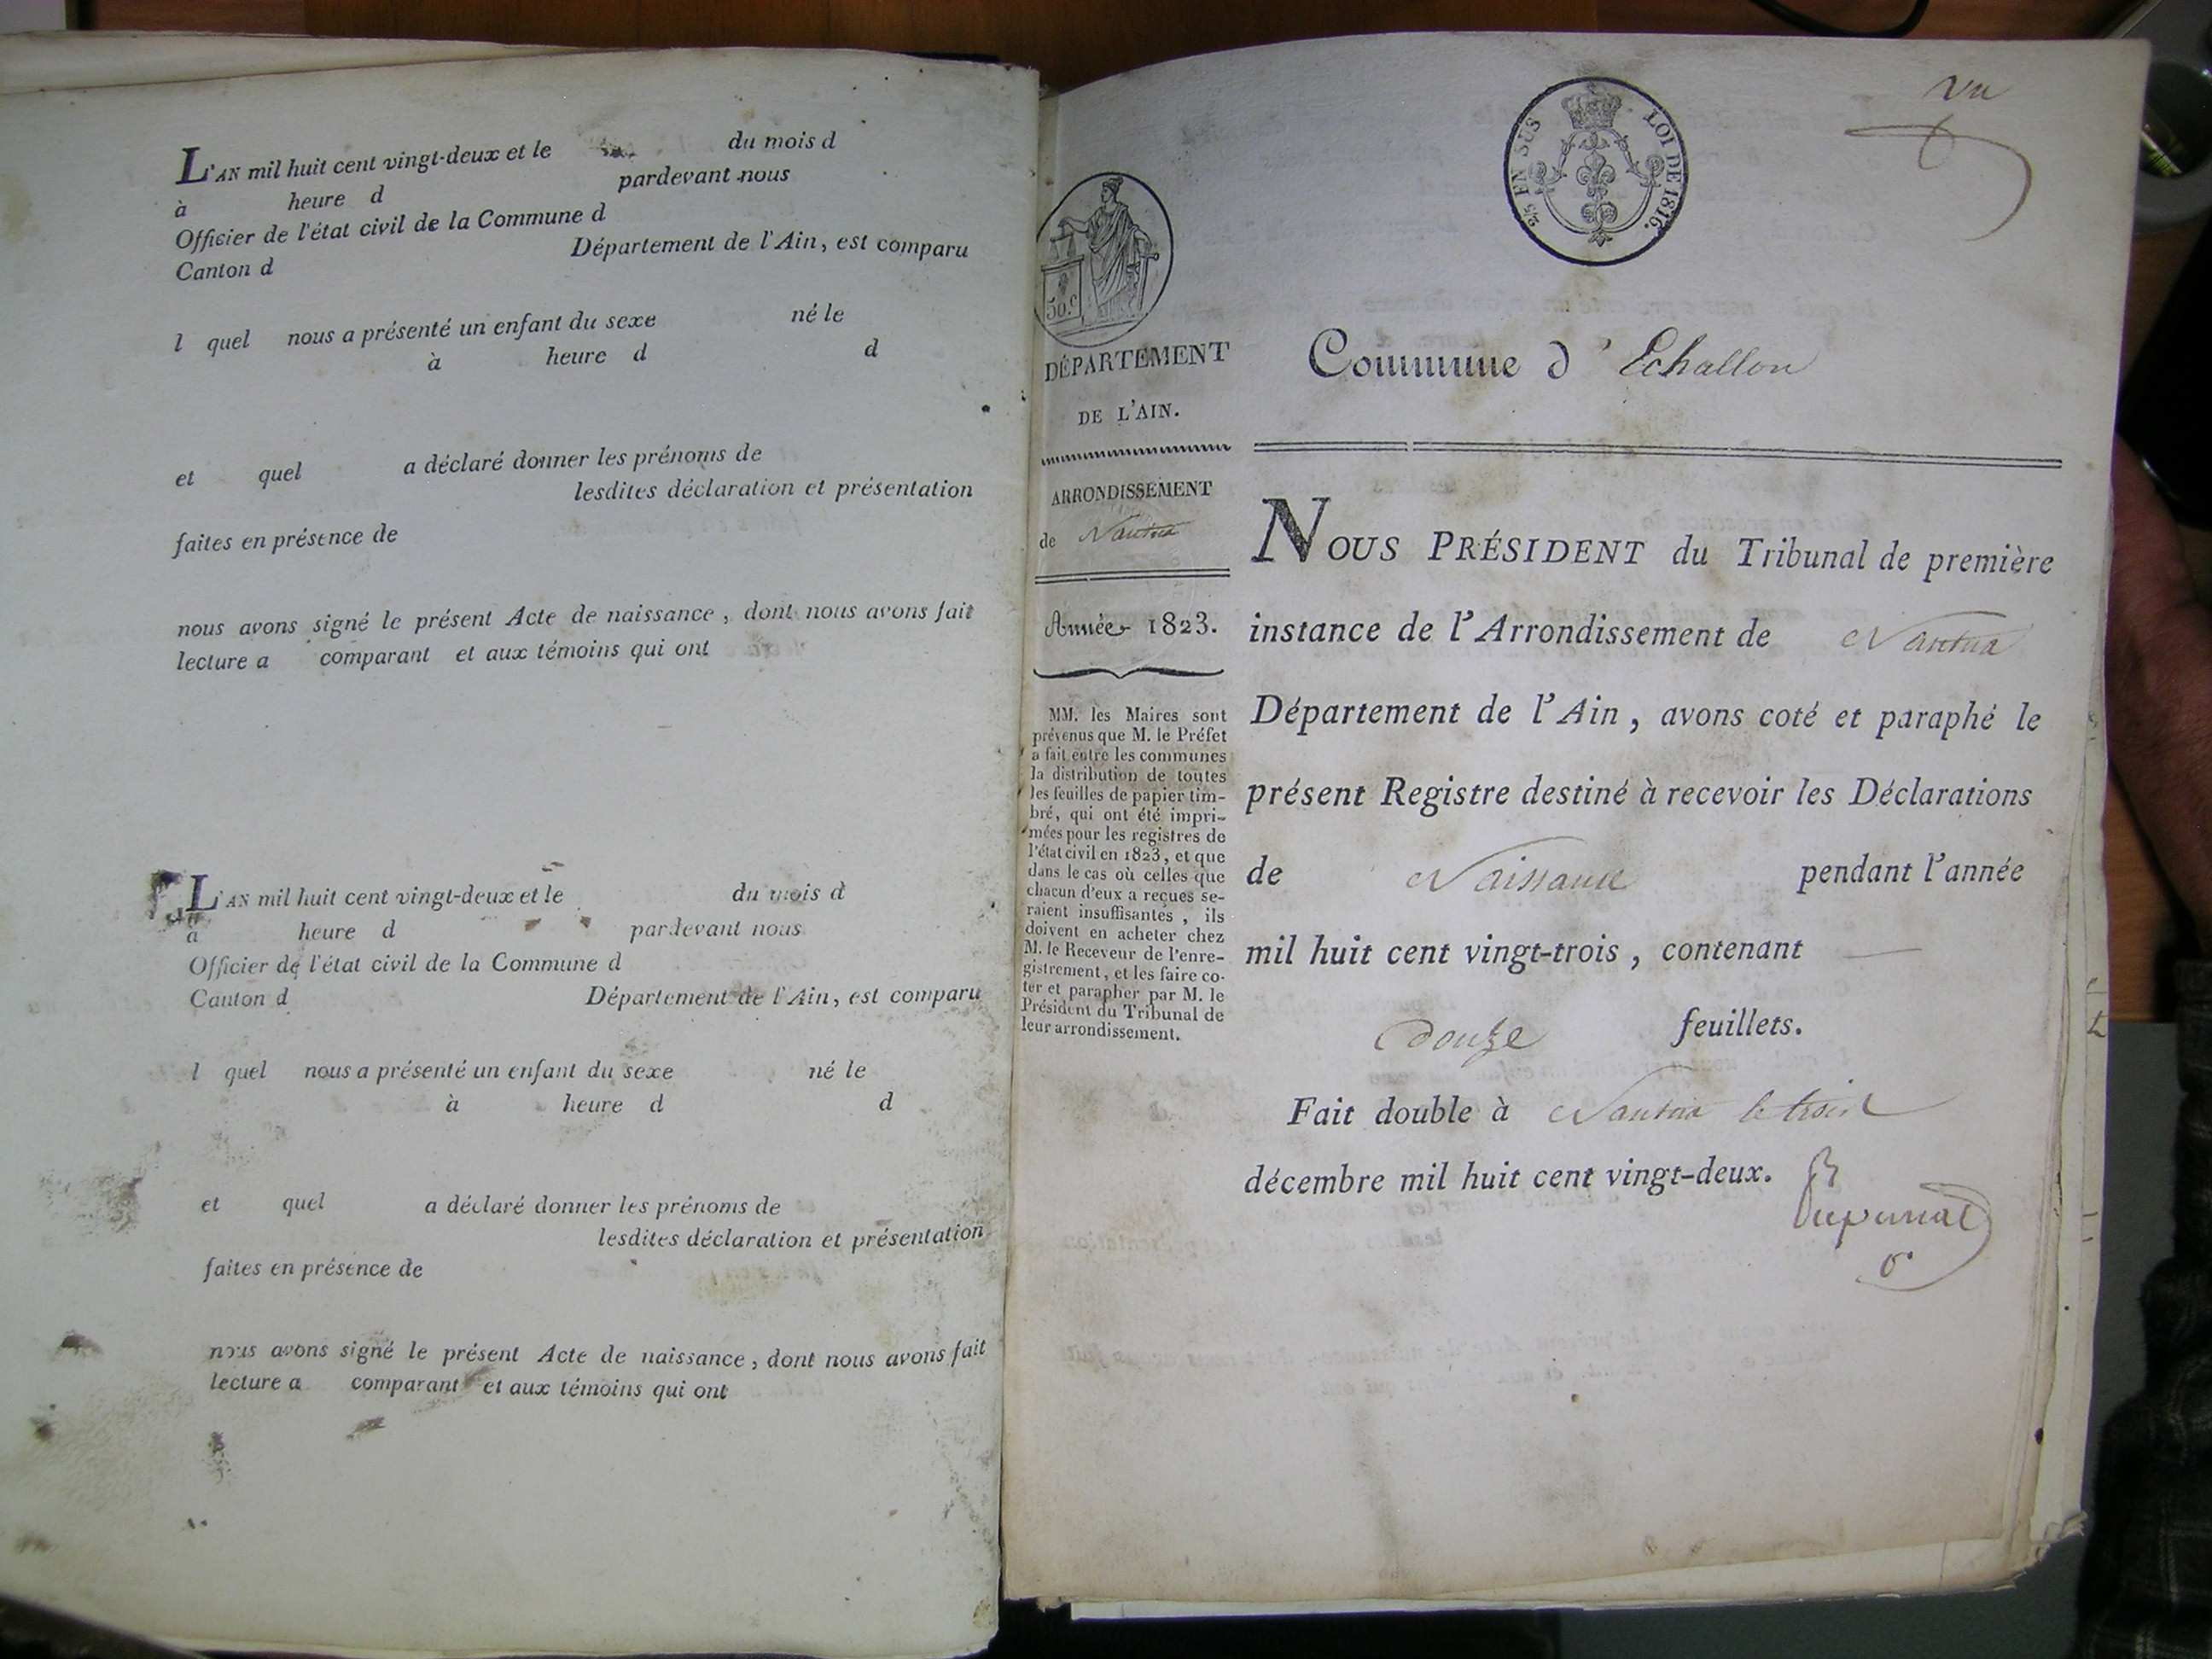 L'AN mil huit cent vingt-deux et le du mois d
à heure d pardevant nous
Officier de l'état civil de la Commune d
Canton d Département de l'Ain, est comparu
l quel nous a présenté un enfant du sexe né le
à heure d d
et quel a déclaré donner les prénoms de
lesdites déclaration et présentation
faites en présence de
nous avons signé le présent Acte de naissance, dont nous avons fait
lecture a comparant et aux témoins qui ont
L'AN mil huit cent vingt-deux et le du mois d
à heure d pardevant nous
Officier de l'état civil de la Commune d
Canton d Département de l'Ain, est comparu
l quel nous a présenté un enfant du sexe né le
à heure d d
et quel a déclaré donner les prénoms de
lesdites déclaration et présentation
faites en présence de
nous avons signé le présent Acte de naissance, dont nous avons fait
lecture a comparant et aux témoins qui ont
vu
2/5 EN SUS LOI DE 1816.
50.c
DÉPARTEMENT
DE L'AIN.
ARRONDISSEMENT
de Nantua
Année 1823.
MM. les Maires sont
prévenus que M. le Préfet
a fait entre les communes
la distribution de toutes
les feuilles de papier tim-
bré, qui ont été impri-
mées pour les registres de
l'état civil en 1823, et que
dans le cas où celles que
chacun d'eux a reçues se-
raient insuffisantes, ils
doivent en acheter chez
M. le Receveur de l'enre-
gistrement, et les faire co-
ter et parapher par M. le
Président du Tribunal de
leur arrondissement.
Commune d'Echallon
NOUS PRÉSIDENT du Tribunal de première
instance de l'Arrondissement de Nantua
Département de l'Ain, avons coté et paraphé le
présent Registre destiné à recevoir les Déclarations
de Naissance pendant l'année
mil huit cent vingt-trois, contenant
douze feuillets.
Fait double à Nantua le trois
décembre mil huit cent vingt-deux.